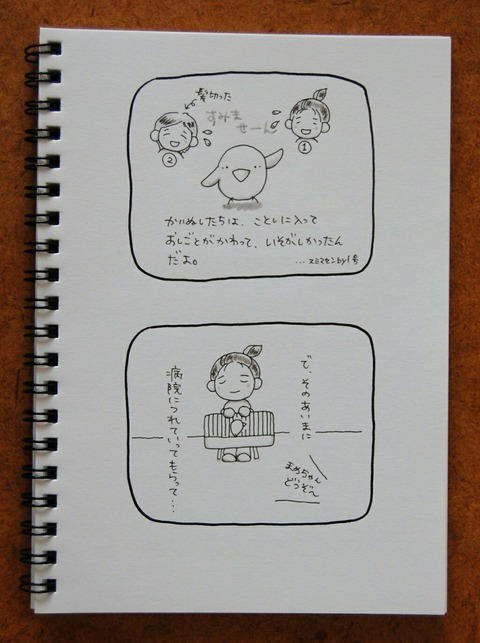 髪切った
すみま
せーん
②
①
かいぬしたちは、ことしに入って
おしごとがかわって、いそがしかったん
だよ。
…スミマセン by1号
で、そのあいまに
まめちゃん
どうぞ〜
病院につれていってもらって…